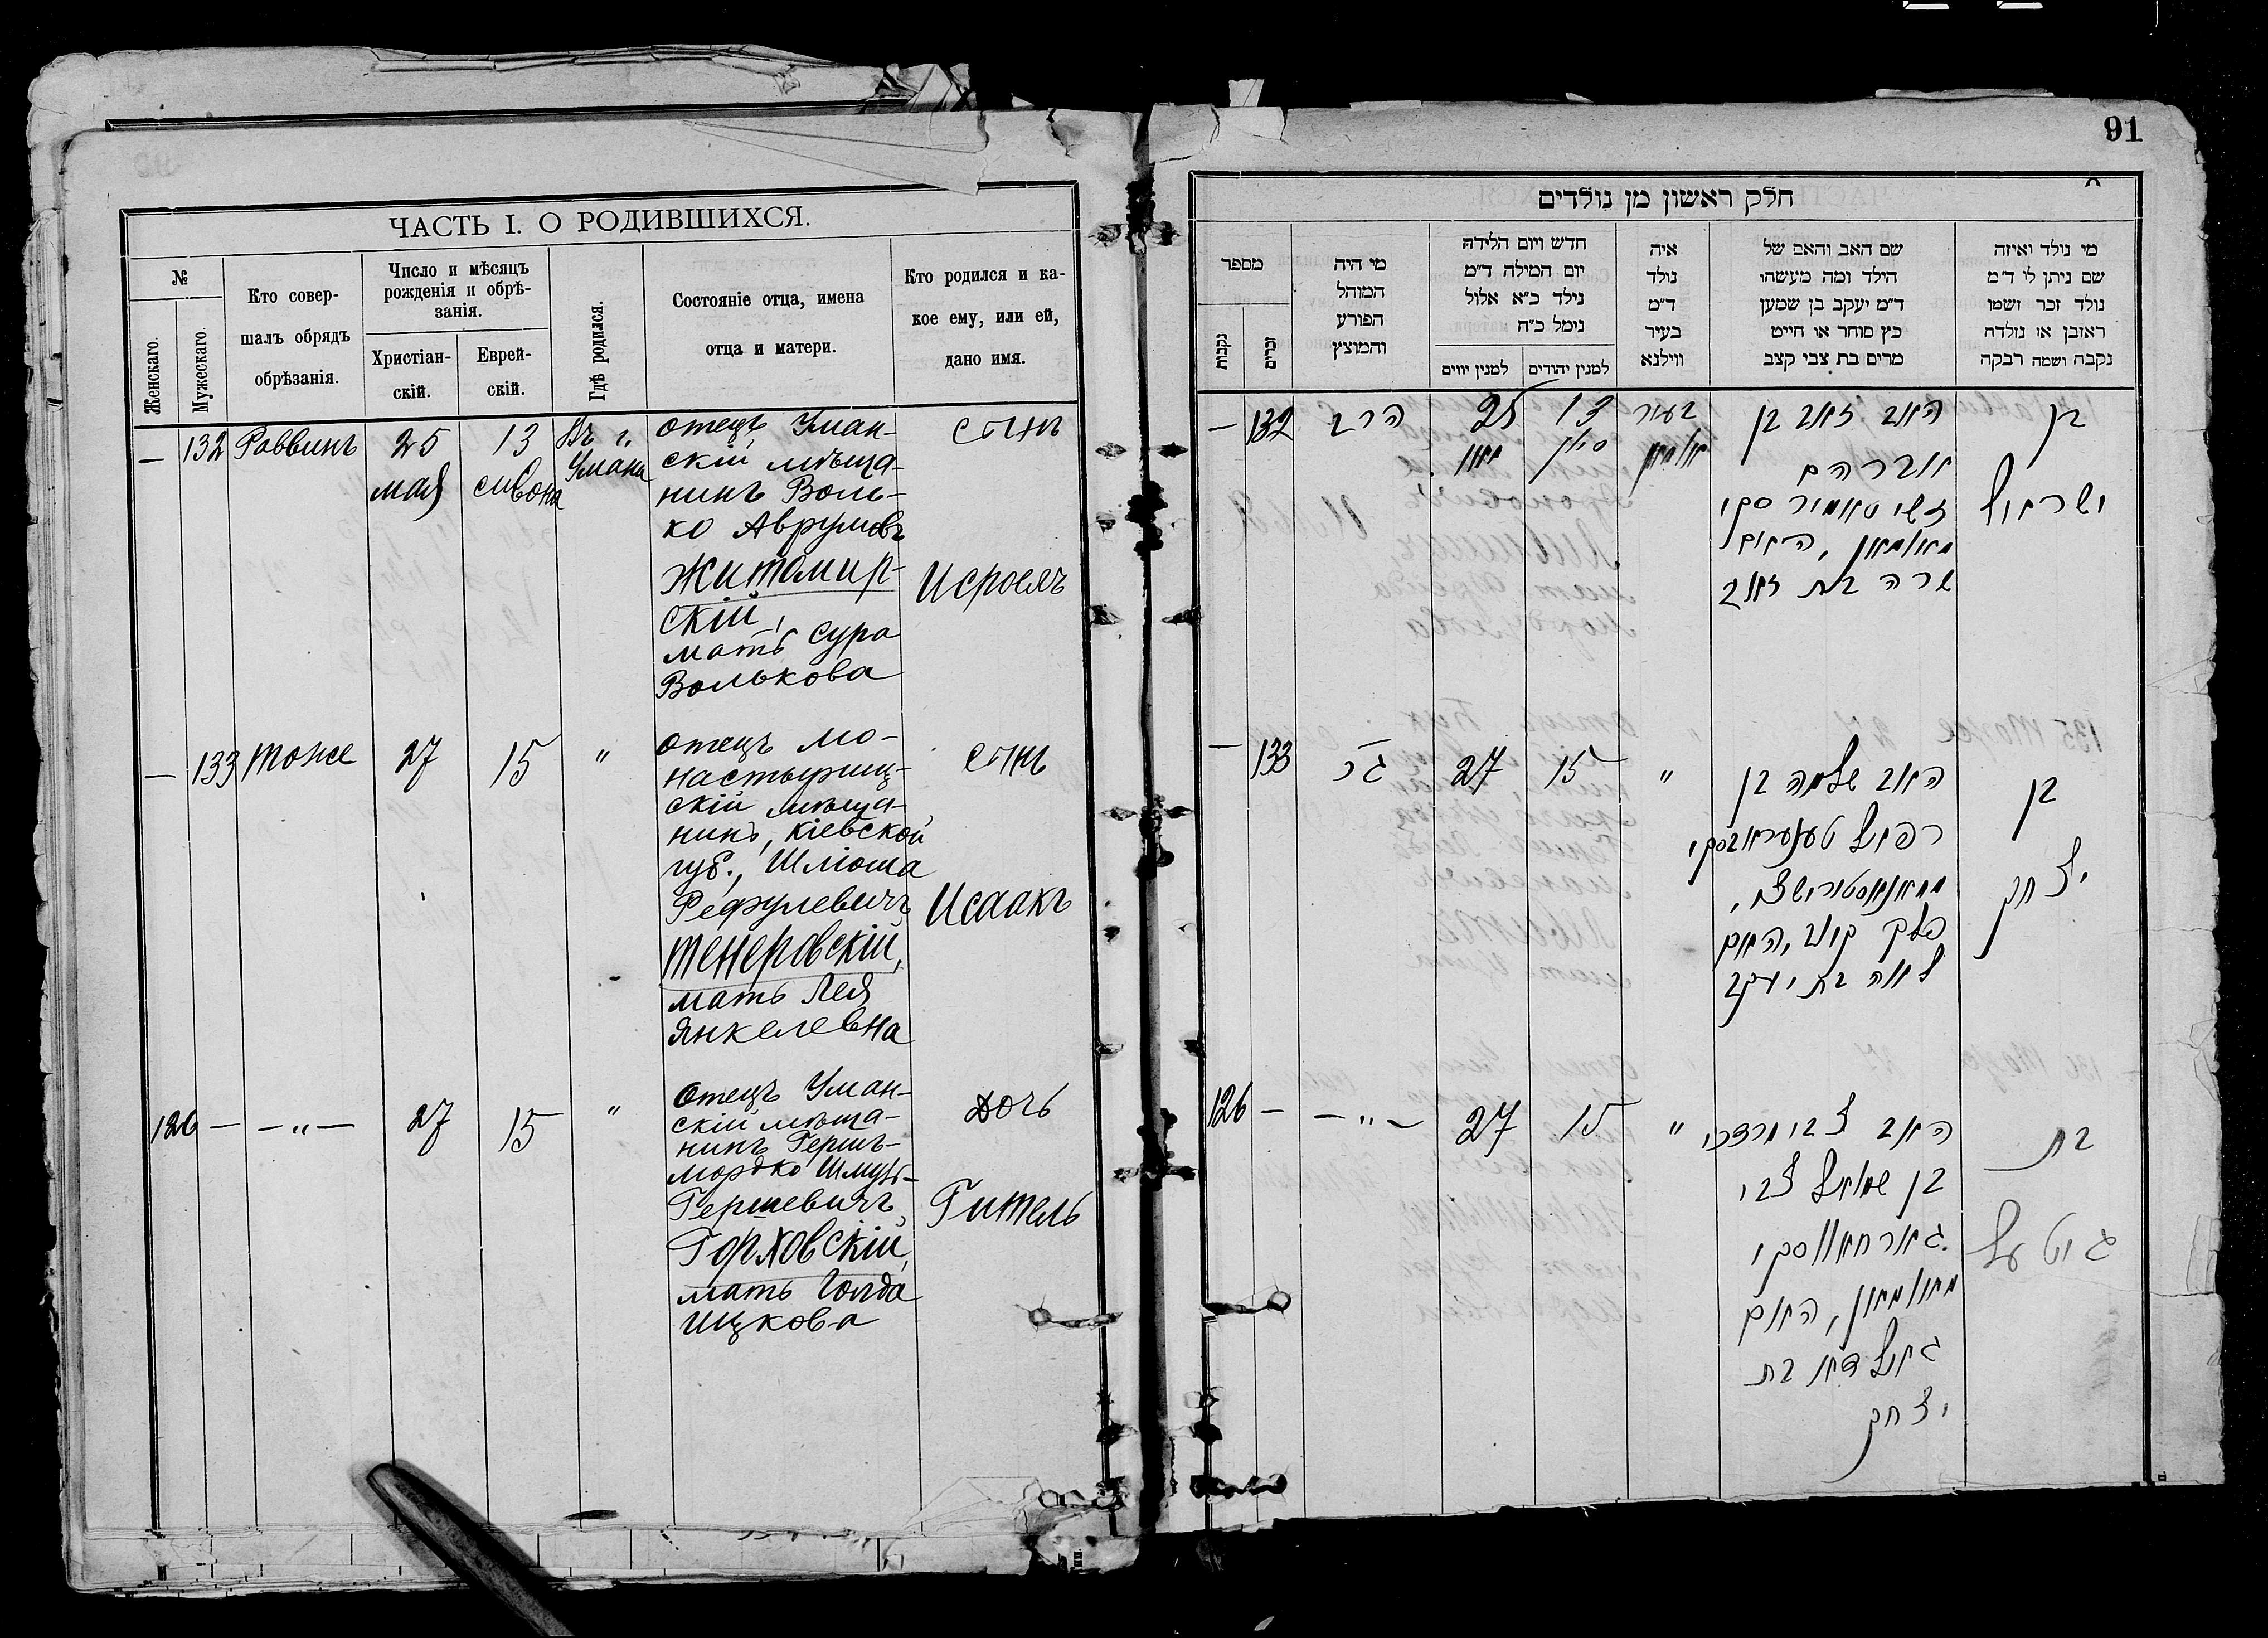 91
ЧАСТЬ I. О РОДИВШИХСЯ.
№
Женскаго.
Мужескаго.
Кто совер-
шалъ обрядъ
обрѣзанія.
Число и мѣсяцъ
рожденія и обрѣ-
занія.
Христіан-
скій.
Еврей-
скій.
Гдѣ родился.
Состояніе отца, имена
отца и матери.
Кто родился и ка-
кое ему, или ей,
дано имя.
— 132 Раввинъ 25 13 Въ г.
мая сивона Умана
отецъ Уман-
скій мѣща-
нинъ Воль-
ко Аврумовъ
Житомир-
скій,
мать Сура
Волькова
сынъ
Исроель
— 133 тоже 27 15 "
отецъ Мо-
настырищ-
скій мѣща-
нинъ, Кіевской
губ., Шлюма
Рефулевичъ
Тенеровскій,
мать Лея
Янкелевна
сынъ
Исаакъ
126 — — " — 27 15 "
отецъ Уман-
скій мѣща-
нинъ Гершъ-
Мордко Шмуль-
Гершевичъ
Горховскій,
мать Голда
Ицкова
дочь
Гитель
חלק ראשון מן נולדים
מספר
נקבות
זכרים
מי היה
המוהל
הפורע
והמוצץ
חדש ויום הלידה
יום המילה ד״מ
נילד כ״א אלול
נימל כ״ח
למנין יווים
למנין יהודים
איה
נולד
ד״מ
בעיר
ווילנא
שם האב והאם של
הילד ומה מעשהו
ד״מ יעקב בן שמען
כץ סוחר או חייט
מרים בת צבי קצב
מי נולד ואיזה
שם ניתן לו ד״מ
נולד זכר ושמו
ראובן או נולדה
נקבה ושמה רבקה
— 132 הרב 25 13 בעיר
מאי סיון אומאן
האב זאב בן
אברהם
זשיטאמירסקי
מאומאן, האם
שרה בת זאב
בן
ישראל
— 133 גר 27 15 "
האב שלמה בן
רפאל טענעראווסקי
ממאנאסטרישצע,
פלך קיוב, האם
לאה בת יעקב
בן
יצחק
126 — — " — 27 15 "
האב צבי מרדכי
בן שמואל צבי
גארחאווסקי
מאומאן, האם
גאלדא בת
יצחק
בת
גיטעל